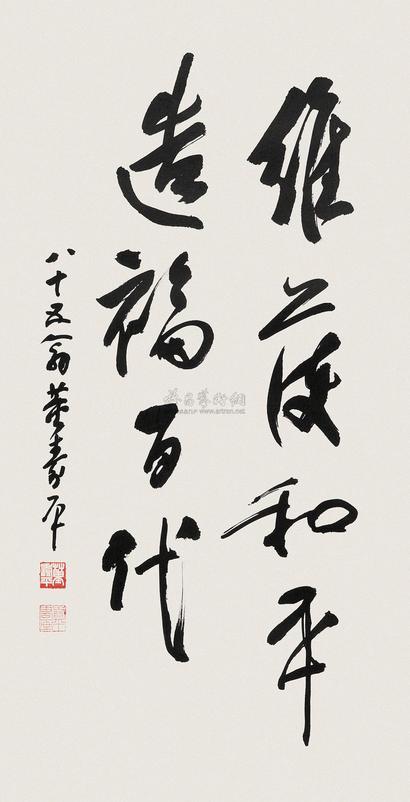 維護和平
造福百代
八十五翁董壽平
雅昌藝術網
www.artron.net